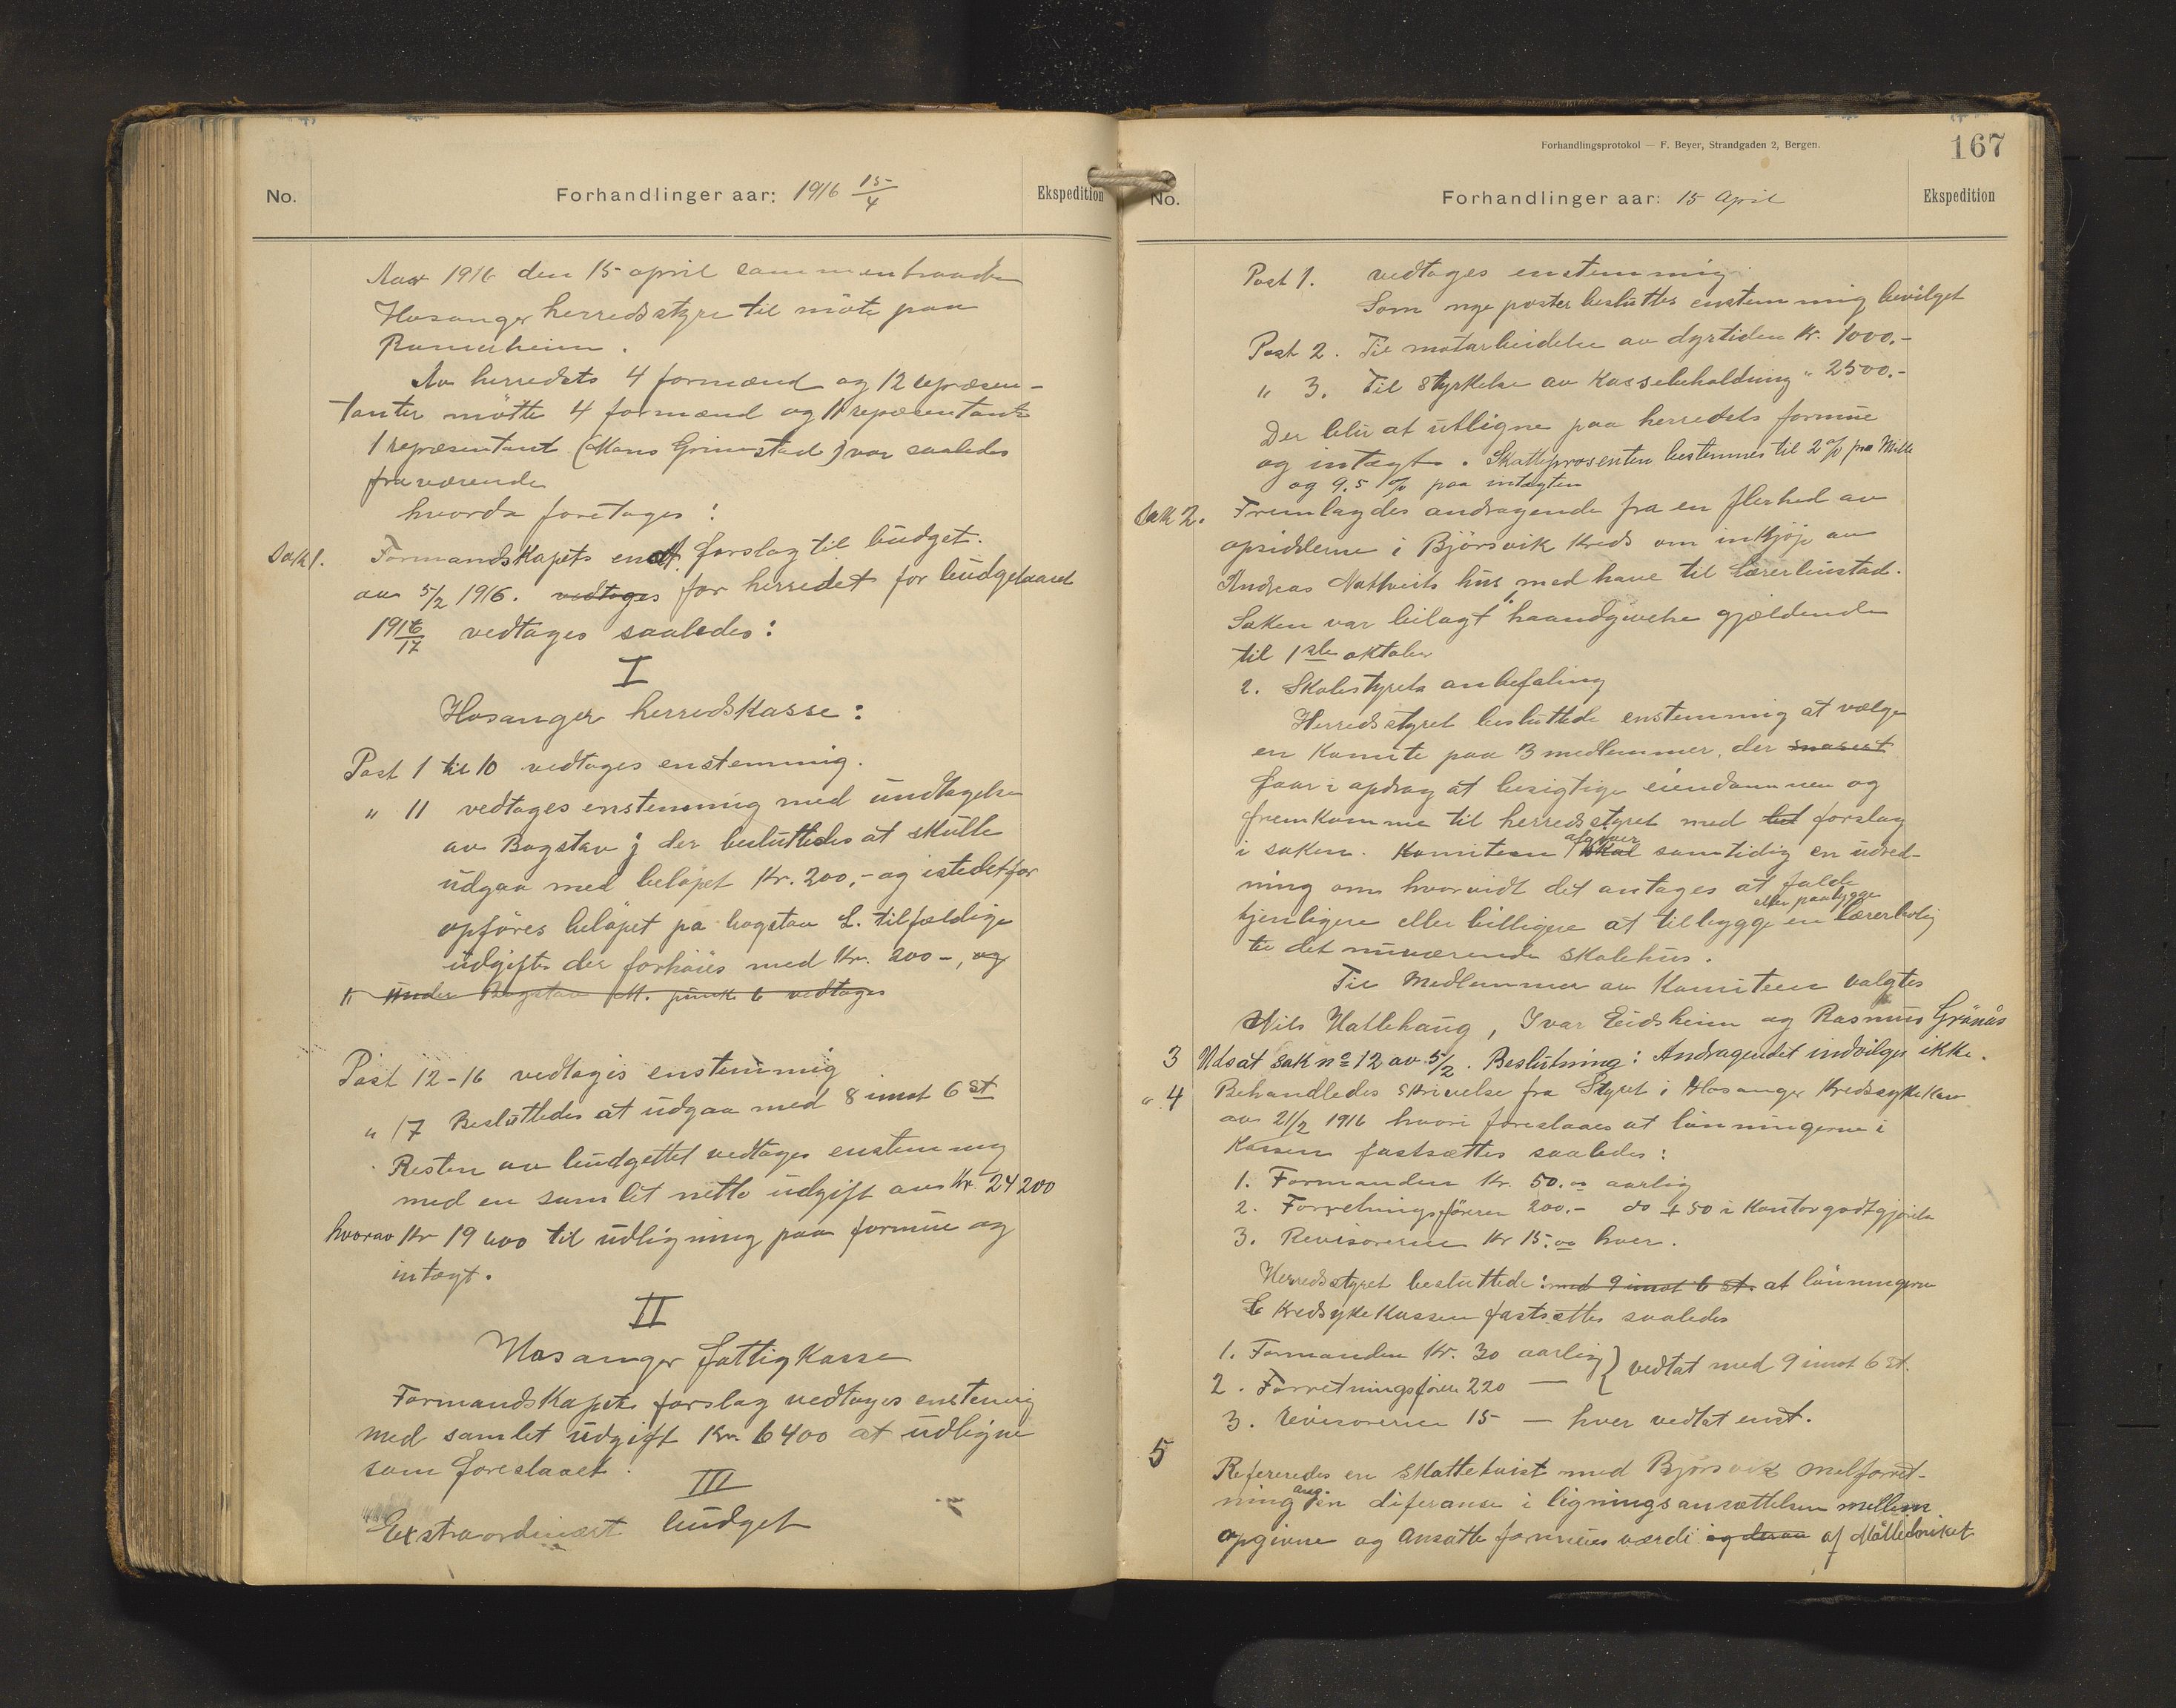 No.
Forhandlinger aar: 1916 15/4
Ekspedition
Aar 1916 den 15 april sammentraadte
Hosanger herredsstyre til møte paa
Romerheim.
Av herredets 4 formænd og 12 repræsen-
tanter møtte 4 formænd og 11 repæsentanter
1 repræsentant (Mons Grimstad) var saaledes
fraværende
hvorda foretages:
Sak 1. Formandskapets enst. forslag til büdget.
av 5/2 1916. vedtages for herredet for büdgetaaret
1916/17 vedtages saaledes:
I
Hosanger herredskasse:
Post 1 til 10 vedtages enstemmig.
" 11 vedtages enstemmig med ündtagelse
av Bogstav j der beslüttedes at skülle
üdgaa med beløpet Kr. 200,- og istedetfor
opføres beløpet på bogstav L. tilfældige
üdgifter der forhøies med Kr. 200-, og
" Ünder Bogstav M. pünkt 6 vedtages
Post 12-16 vedtages enstemmig
" 17 Beslüttedes at üdgaa med 8 imot 6 st
Resten av büdgettet vedtages enstemmig
med en samlet netto üdgift av Kr. 24 200
hvorav Kr 19 600 til üdligning paa formüe og
intægt.
II
Hosanger fattigkasse
Formandskapets forslag vedtages enstemig
med samlet üdgift Kr. 6400 at üdligne
som foreslaaet.
III
Extraordinært büdget
Forhandlingsprotokol — F. Beyer, Strandgaden 2, Bergen.
167
No.
Forhandlinger aar: 15 April
Ekspedition
Post 1. vedtages enstemmig.
Som nye poster beslüttes enstemmig bevilget
Post 2. Til motarbeidelse av dyrtiden Kr. 1000.-
" 3. Til styrkelse av Kassebeholdning " 2500.-
Der blir at ütligne paa herredets formüe
og intægt. Skatteprosenten bestemmes til 2 % pro Mille
og 9.5 % paa intægten
Sak 2. Fremlagdes andragende fra en flerhed av
opsidderne i Bjørsvik Kreds om inkjøp av
Andreas Nathveits hüs med have til Lærerbüstad.
Saken var bilagt 1. haandgivelse gjældende
til 1ste oktober
2. Skolestyrets anbefaling
Herredsstyret beslüttede enstemmig at vælge
en Komite paa 3 medlemmer, der snarest
faar i opdrag at besigtige eiendommen og
fremkomme til herredsstyret med forslag
i saken. Komiteen skal afgiver samtidig en üdred-
ning om hvorvidt det antages at falde
eller paabygge
tjenligere eller billigere at tilbygge en Lærerbolig
til det nüværende skolehüs.
Til Medlemmer av Komiteen valgtes
Nils Hatlehaüg, Ivar Eidsheim og Rasmüs Grånås
3 Udsat sak no 12 av 5/2. Beslütning: Andragendet indvilges ikke.
" 4 Behandledes skrivelse fra Styret i Hosanger Kredssykekas
av 21/2 1916 hvori foreslaaes at lønningerne i
Kassen fastsættes saaledes:
1. Formanden Kr. 50.00 aarlig
2. Forretningsføreren 200.- do + 50 i Kontorgodtgjørelse
3. Revisorerne Kr 15.00 hver.
Herredsstyret beslüttede: med 9 imot 6 st. at lønningerne
i Kredsykekassen fastsættes saaledes
1. Formanden Kr. 30 aarlig } vedtat med 9 imot 6 st.
2. Forretningsfører 220 —
3. Revisorerne 15 — hver vedtat enst.
5 Refereredes en skattetvist med Bjørsvik Mølforret-
ning ang. en diferanse i ligningsansættelsen mellem
opgivne og ansatte formües værdi og derav af Møllebrüket